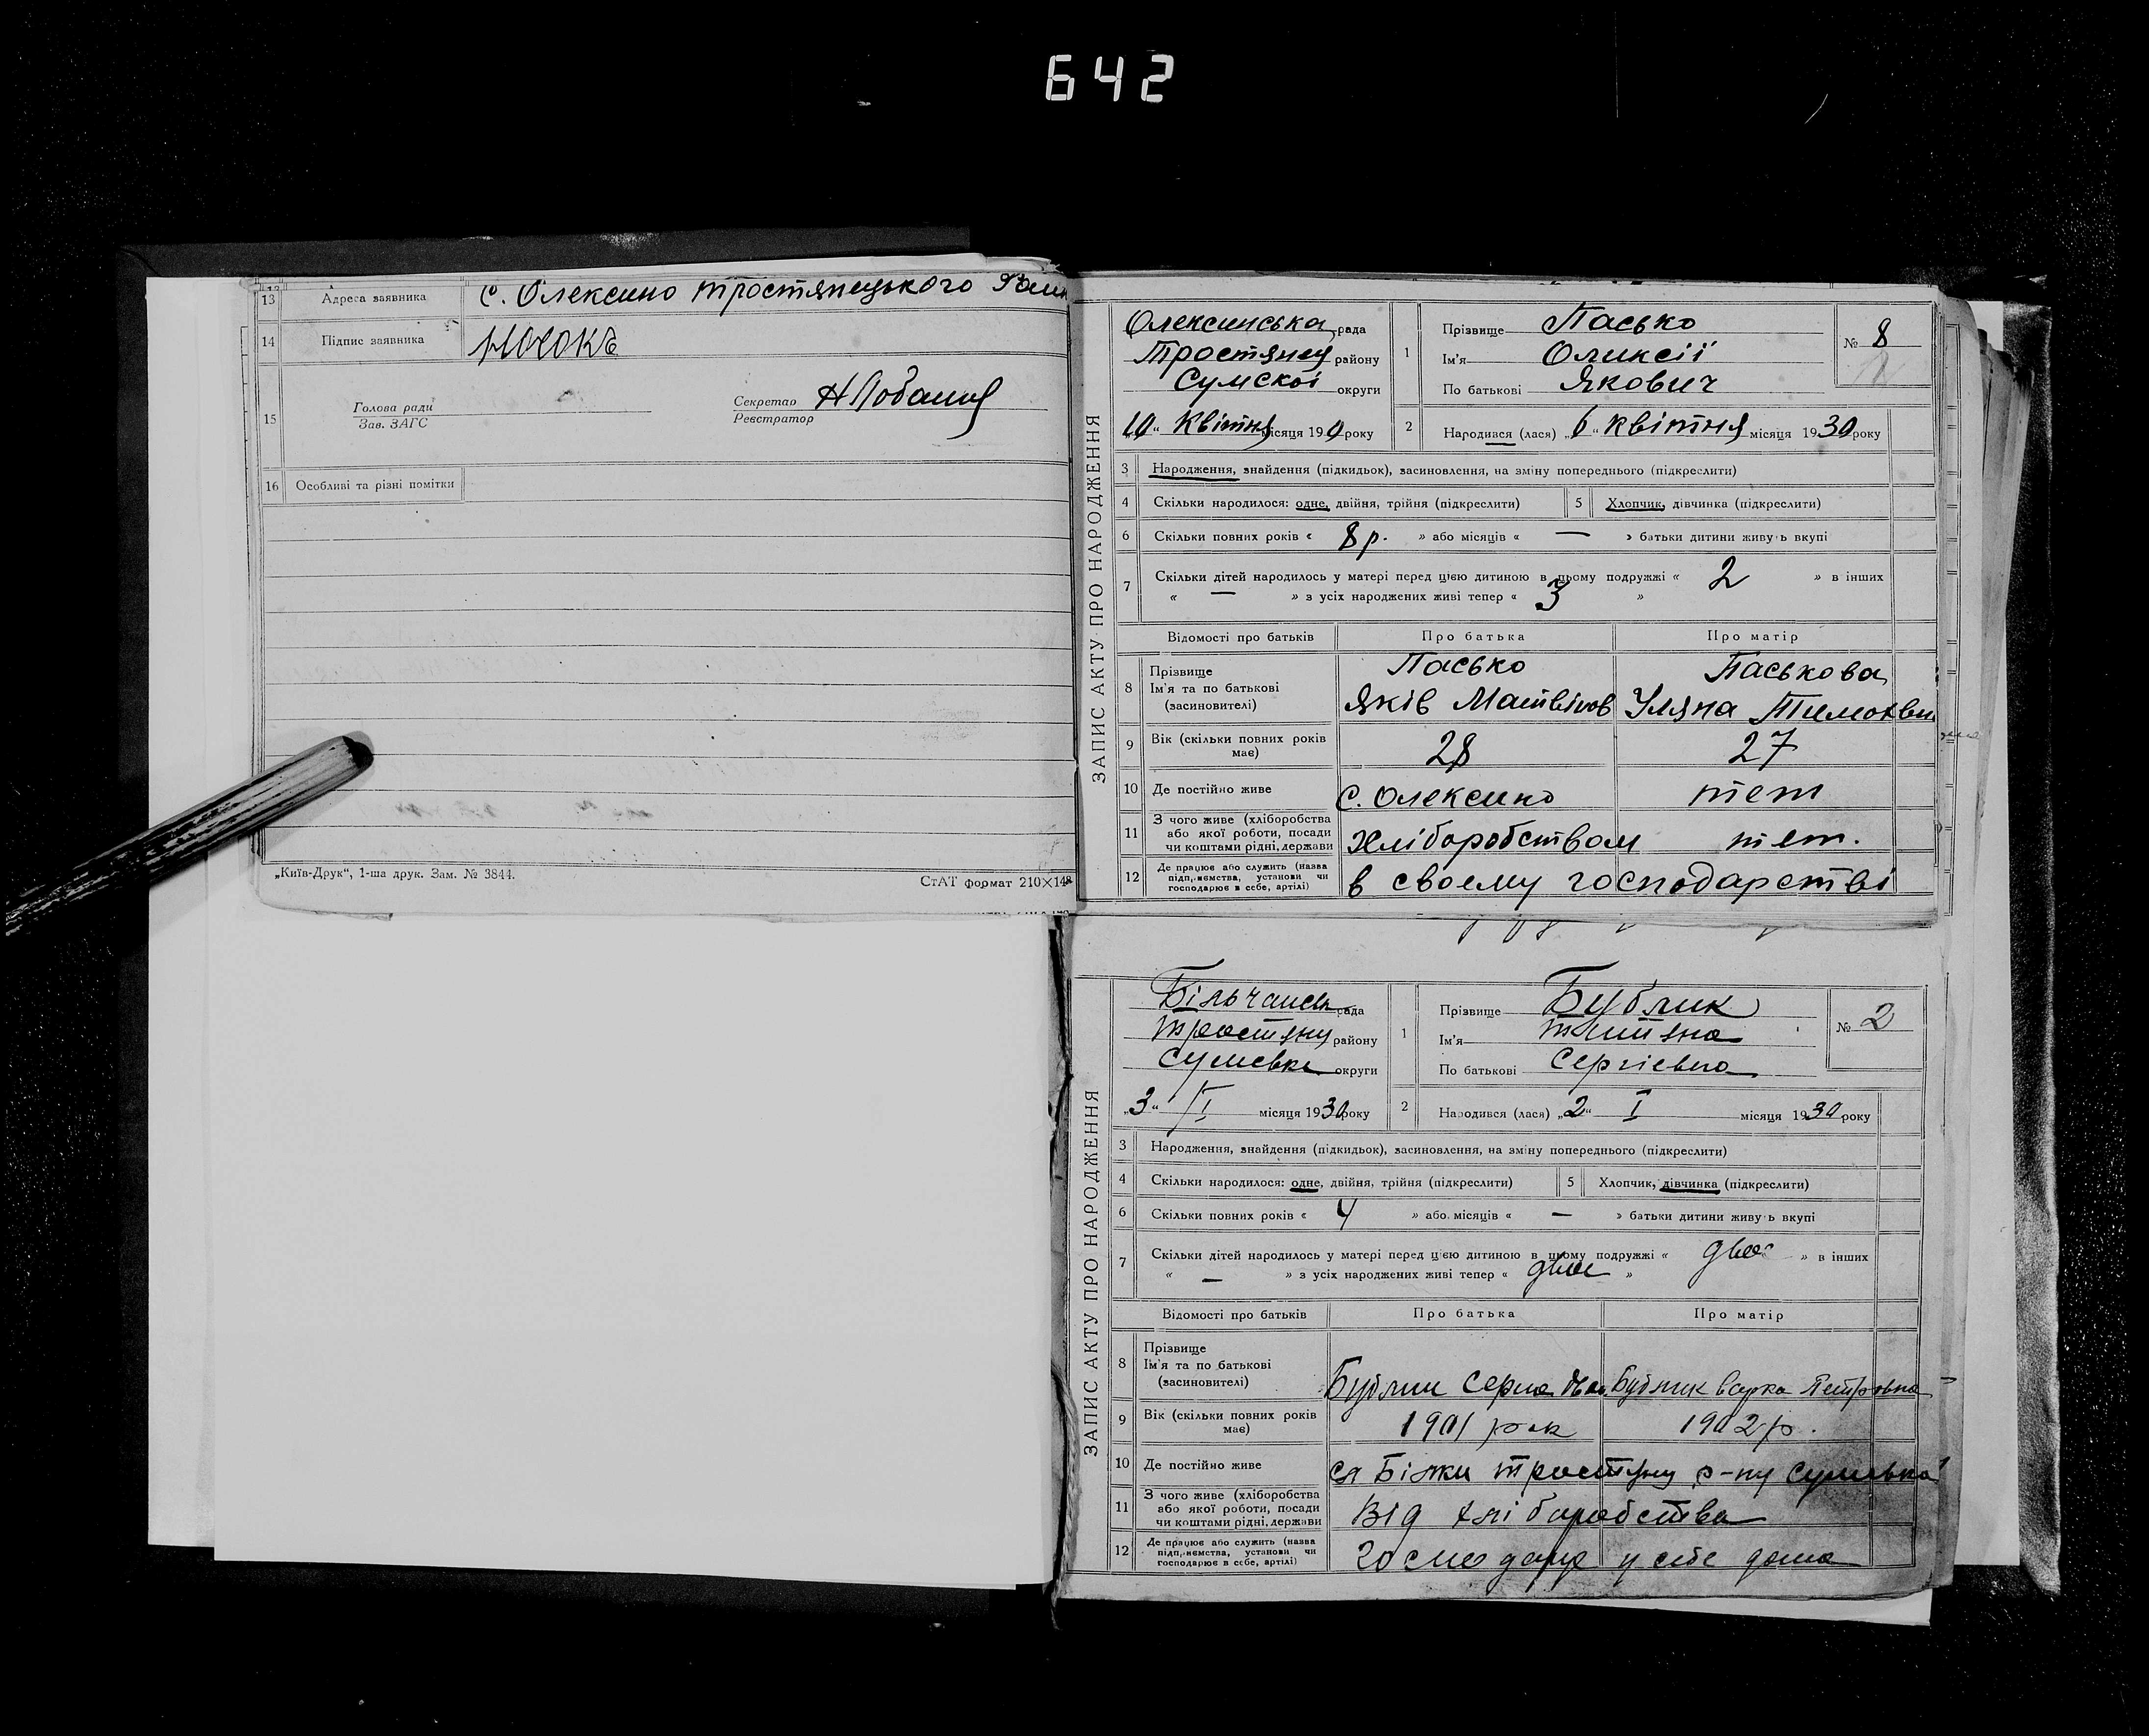 642
13 Адреса заявника с. Олексино Тростянецького
14 Підпис заявника
15 Голова ради
Зав. ЗАГС
Секретар
Реєстратор
16 Особливі та різні помітки
„Київ-Друк“, 1-ша друк. Зам. № 3844.
СтАТ формат 210×148
ЗАПИС АКТУ ПРО НАРОДЖЕННЯ
Олексинська рада
Тростянец району
Сумскої округи
„10“ Квітня місяця 19 0 року
1 Прізвище Пасько
Ім'я Оликсії
По батькові Якович
№ 8
2 Народився (лася) „6“ квітня місяця 1930 року
3 Народження, знайдення (підкидьок), засиновлення, на зміну попереднього (підкреслити)
4 Скільки народилося: одне, двійня, трійня (підкреслити)
5 Хлопчик, дівчинка (підкреслити)
6 Скільки повних років « 8 р. » або місяців « — » батьки дитини живуть вкупі
7 Скільки дітей народилось у матері перед цією дитиною в цьому подружжі « 2 » в інших
« — » з усіх народжених живі тепер « 3 »
Відомості про батьків Про батька Про матір
8 Прізвище
Ім'я та по батькові
(засиновителі)
Пасько Паськова
Яків Матвійов Уляна
9 Вік (скільки повних років
має)
28 27
10 Де постійно живе с. Олексино тет
11 З чого живе (хліборобства
або якої роботи, посади
чи коштами рідні, держави
Хліборобством тет.
12 Де працює або служить (назва
підприємства, установи чи
господарює в себе, артілі)
в своему господарстві
ЗАПИС АКТУ ПРО НАРОДЖЕННЯ
Більчанськ рада
Тростянец району
округи
„3“ /I місяця 1930 року
1 Прізвище Бублик
Ім'я Титяна
По батькові Сергієвна
№ 2
2 Народився (лася) „2“ I місяця 1930 року
3 Народження, знайдення (підкидьок), засиновлення, на зміну попереднього (підкреслити)
4 Скільки народилося: одне, двійня, трійня (підкреслити)
5 Хлопчик, дівчинка (підкреслити)
6 Скільки повних років « 4 » або місяців « — » батьки дитини живуть вкупі
7 Скільки дітей народилось у матері перед цією дитиною в цьому подружжі « двоє » в інших
« — » з усіх народжених живі тепер « двоє »
Відомості про батьків Про батька Про матір
8 Прізвище
Ім'я та по батькові
(засиновителі)
Бублик Бублик Варка Петровна
9 Вік (скільки повних років
має)
1901 рок 1902 р.
10 Де постійно живе Білки р-ну
11 З чого живе (хліборобства
або якої роботи, посади
чи коштами рідні, держави
від хліборобства
12 Де працює або служить (назва
підприємства, установи чи
господарює в себе, артілі)
господарує у себе дома